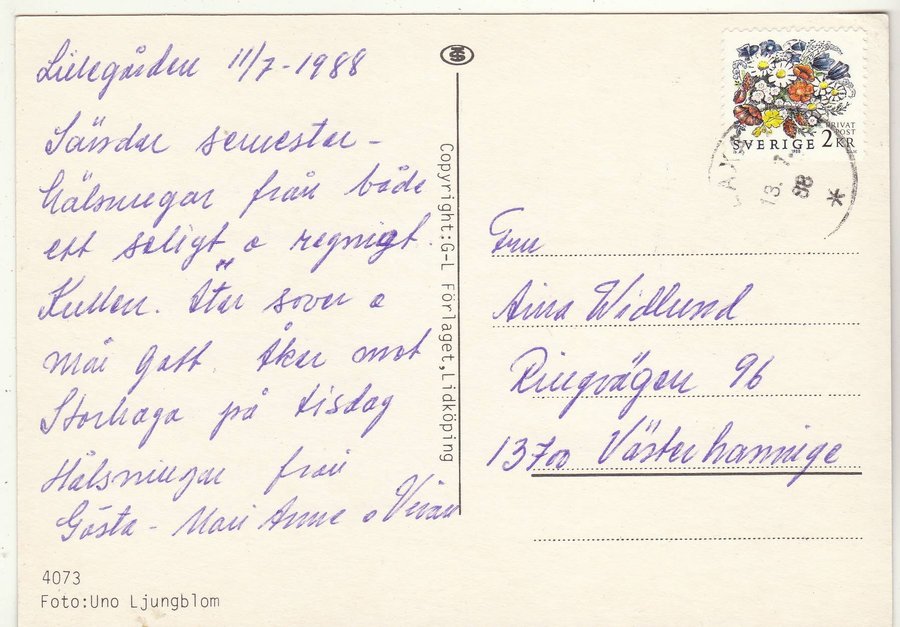 Lillegården 11/7-1988
Sänder semester-
hälsningar från både
ett soligt o regnigt
Kullen. Äter sover o
mår gott. Åker mot
Storhaga på tisdag
Hälsningar från
Gösta - Mari Anne o Vivan
4073
Foto:Uno Ljungblom
Copyright:G-L Förlaget,Lidköping
PRIVAT
POST
SVERIGE 2KR
13. 7. 88 *
Fru
Aina Widlund
Ringvägen 96
13700 Västerhaninge